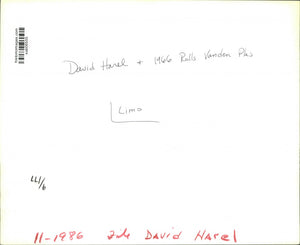 David Harel + 1966 Rolls Vanden Plas
Limo
LL/6
11-1986 David Harel